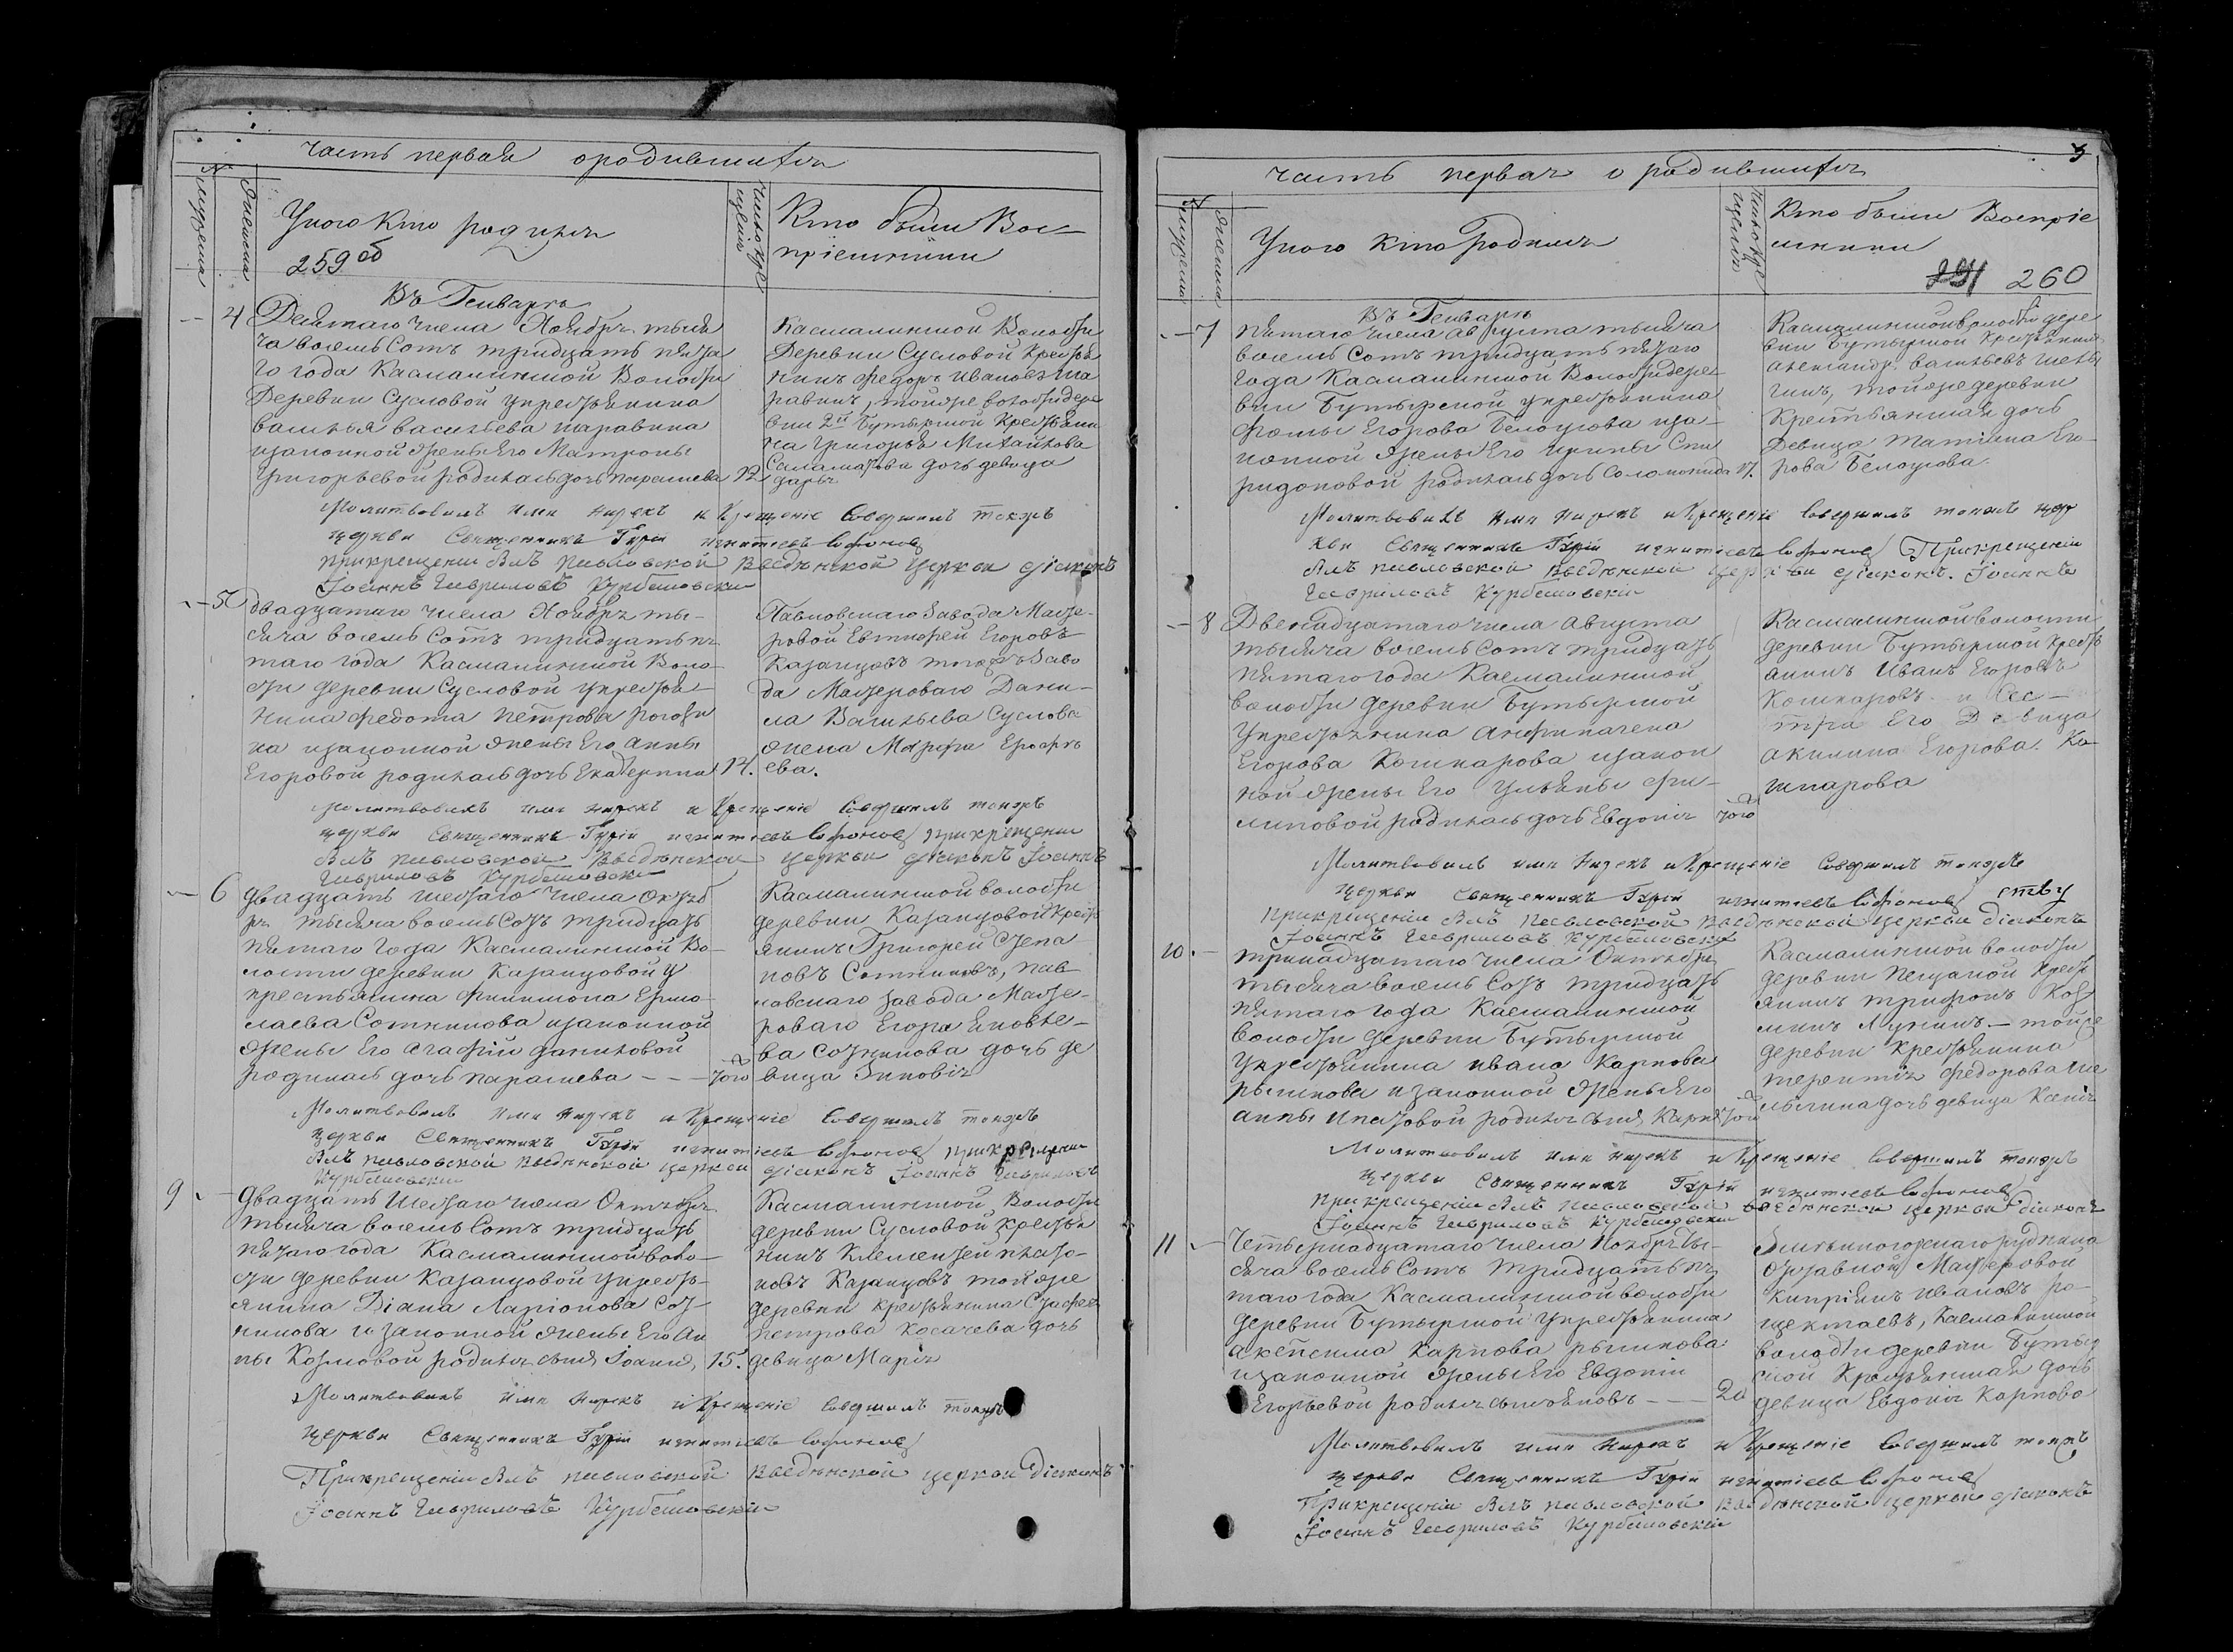 часть первая о родившихся
№
мужеска
женска
У кого кто родился
259 об
Число кре
щенія
Кто были Вос-
пріемники
Въ Генварѣ
4
Деятаго числа Ноября тыся
ча восемь Сотъ тридцать пята
го года Касмалинской Волости
Деревни Сусловой у крестьянина
василья васильева паравина
изаконной жены Его Матроны
Григорьевой родилась дочь парасковa
12
Касмалинской Волости
Деревни Сусловой Кресья
нинъ Федоръ Ивановъ
равинъ, тойже волости дере
вни 2й Бутырской Крестьяни
на Григорья Михайлова
Саламатова дочь девица
дарья
Молитвовалъ имя нарекъ и Крещеніе Совершилъ тояжъ
церкви Священникъ Гурій игнатіевъ Софонов
прикрещеніи былъ павловской Введенской церкви діаконъ
Іоаннъ Гавриловъ Курбановскій
5
двадцатаго числа Ноября ты-
сяча восемь Сотъ тридцать пя
таго года Касмалинской Воло-
сти деревни Сусловой у крестья-
нина федота петрова рогози
на изаконной жены Его анны
Егоровой родилась дочь Екатерина
14.
Павловскаго Завода Масте-
ровой Евтифей Егоровъ
Казанцовъ тогожъ Заво
да Мастероваго Дани-
ла Васильева Суслова
жена Марфа Ерофѣ
ева.
Молитвовалъ имя нарекъ и Крещеніе Совершилъ тояжъ
церкви Священникъ Гурій игнатіевъ Софонов прикрещеніи
былъ павловской Введенской церкви діаконъ Іоаннъ
Гавриловъ Курбановскій
6
двадцать шестаго числа Октяб
ря тысяча восемь Сотъ тридцать
пятаго года Касмалинской Во-
лости деревни Казанцовой у
крестьянина филимона Ермо-
лаева Сотникова изаконной
жены Его агафіи даниловой
родилась дочь парасковa
тогоже
Касмалинской волости
деревни Казанцовой Кресть
янинъ Григорей Степа
новъ Сотниковъ, пав
ловскаго завода Масте-
роваго Егора Яковле-
ва Сотникова дочь де
вица Зиновія
Молитвовалъ имя нарекъ и Крещеніе Совершилъ тояжъ
церкви Священникъ Гурій игнатіевъ Софонов прикрещеніи
былъ павловской Введенской церкви діаконъ Іоаннъ Гавриловъ
Курбановскій
9
двадцать Шестаго числа Октября
тысяча восемь Сотъ тридцать
пятаго года Касмалинской воло-
сти деревни Казанцовой у кресть-
янина Діана Ларіонова Сот-
никова изаконной жены Его Ан
ны Козмовой родился сынъ Іоаннъ,
15.
Касмалинской Волости
деревни Сусловой Крестья
нинъ Клементей плато-
новъ Казанцовъ тойже
деревни крестьянина
петрова Косачева дочь
девица Марія
Молитвовалъ имя нарекъ и Крещеніе Совершилъ тояжъ
церкви Священникъ Гурій игнатіевъ Софонов
Прикрещеніи былъ павловской Введенской церкви діаконъ
Іоаннъ Гавриловъ Курбановскій
часть первая о родившихся
мужеска
женска
У кого кто родился
Число кре
щенія
Кто были Воспріе
мники
260
Въ Генварѣ
7
пятаго числа августа тысяча
восемь Сотъ тридцать пятаго
года Касмалинской Волости дере-
вни Бутырской у крестьянина
фомы Егорова Белоусова иза-
конной жены Его ирины Спи
ридоновой родилась дочь Соломонида
17.
Касмалинской волости дере
вни Бутырской Крестьянинъ
александръ васильевъ
тойже деревни
Крестьянская дочь
девица татіана Его-
рова Белоусова.
Молитвовалъ имя нарекъ и Крещеніе Совершилъ тояжъ цер
кви Священникъ Гурій игнатіевъ Софонов Прикрещеніи
былъ павловской Введенской церкви діаконъ. Іоаннъ
Гавриловъ Курбановскій
8
Двенадцатаго числа Августа
тысяча восемь Сотъ тридцать
пятаго года Касмалинской
волости деревни Бутырской
Укрестьянина анфиногена
Егорова Кошкарова изакон
ной жены Его ульяны фи-
липовой родилась дочь Евдокія
тогоже
Касмалинской волости
деревни Бутырской Кресть
янинъ Иванъ Егоровъ
Кошкаровъ и Сес-
тра Его Девица
акилина Егорова. Ко-
шкарова
Молитвовалъ имя нарекъ и Крещеніе Совершилъ тояжъ
церкви Священникъ Гурій игнатіевъ Софонов
прикрещеніи былъ павловской Введенской церкви діаконъ
Іоаннъ Гавриловъ Курбановскій
10.
тринадцатаго числа Октября
тысяча восемь Сотъ тридцать
пятаго года Касмалинской
волости деревни Бутырской
Укрестьянина ивана Карпова
рыжкова изаконной жены Его
анны Ипатовой родился сынъ Карпъ
Касмалинской волости
деревни песчаной Кресть
янинъ трифонъ Коз
минъ Лукинъ - тойже
деревни Крестьянина
терентія федорова
дочь девица Ксенія
Молитвовалъ имя нарекъ и Крещеніе Совершилъ тояжъ
церкви Священникъ Гурій игнатіевъ Софонов
прикрещеніи былъ павловской Введенской церкви діаконъ
Іоаннъ Гавриловъ Курбановскій
11
Четырнадцатаго числа Ноября ты-
сяча восемь Сотъ тридцать пя
таго года Касмалинской волости
деревни Бутырской Укрестьянина
акепсима Карпова рыжкова
изаконной жены Его Евдокіи
Егорьевой родился сынъ Іяковъ
20
Змеиногорскаго рудника
отставной Мастеровой
Кипріянъ Ивановъ
Касмалинской
волости деревни Бутыр
ской Крестьянская дочь
девица Евдокія Карпова
Молитвовалъ имя нарекъ и Крещеніе Совершилъ тояжъ
церкви Священникъ Гурій игнатіевъ Софонов
Прикрещеніи былъ павловской Введенской церкви діаконъ
Іоаннъ Гавриловъ Курбановскій